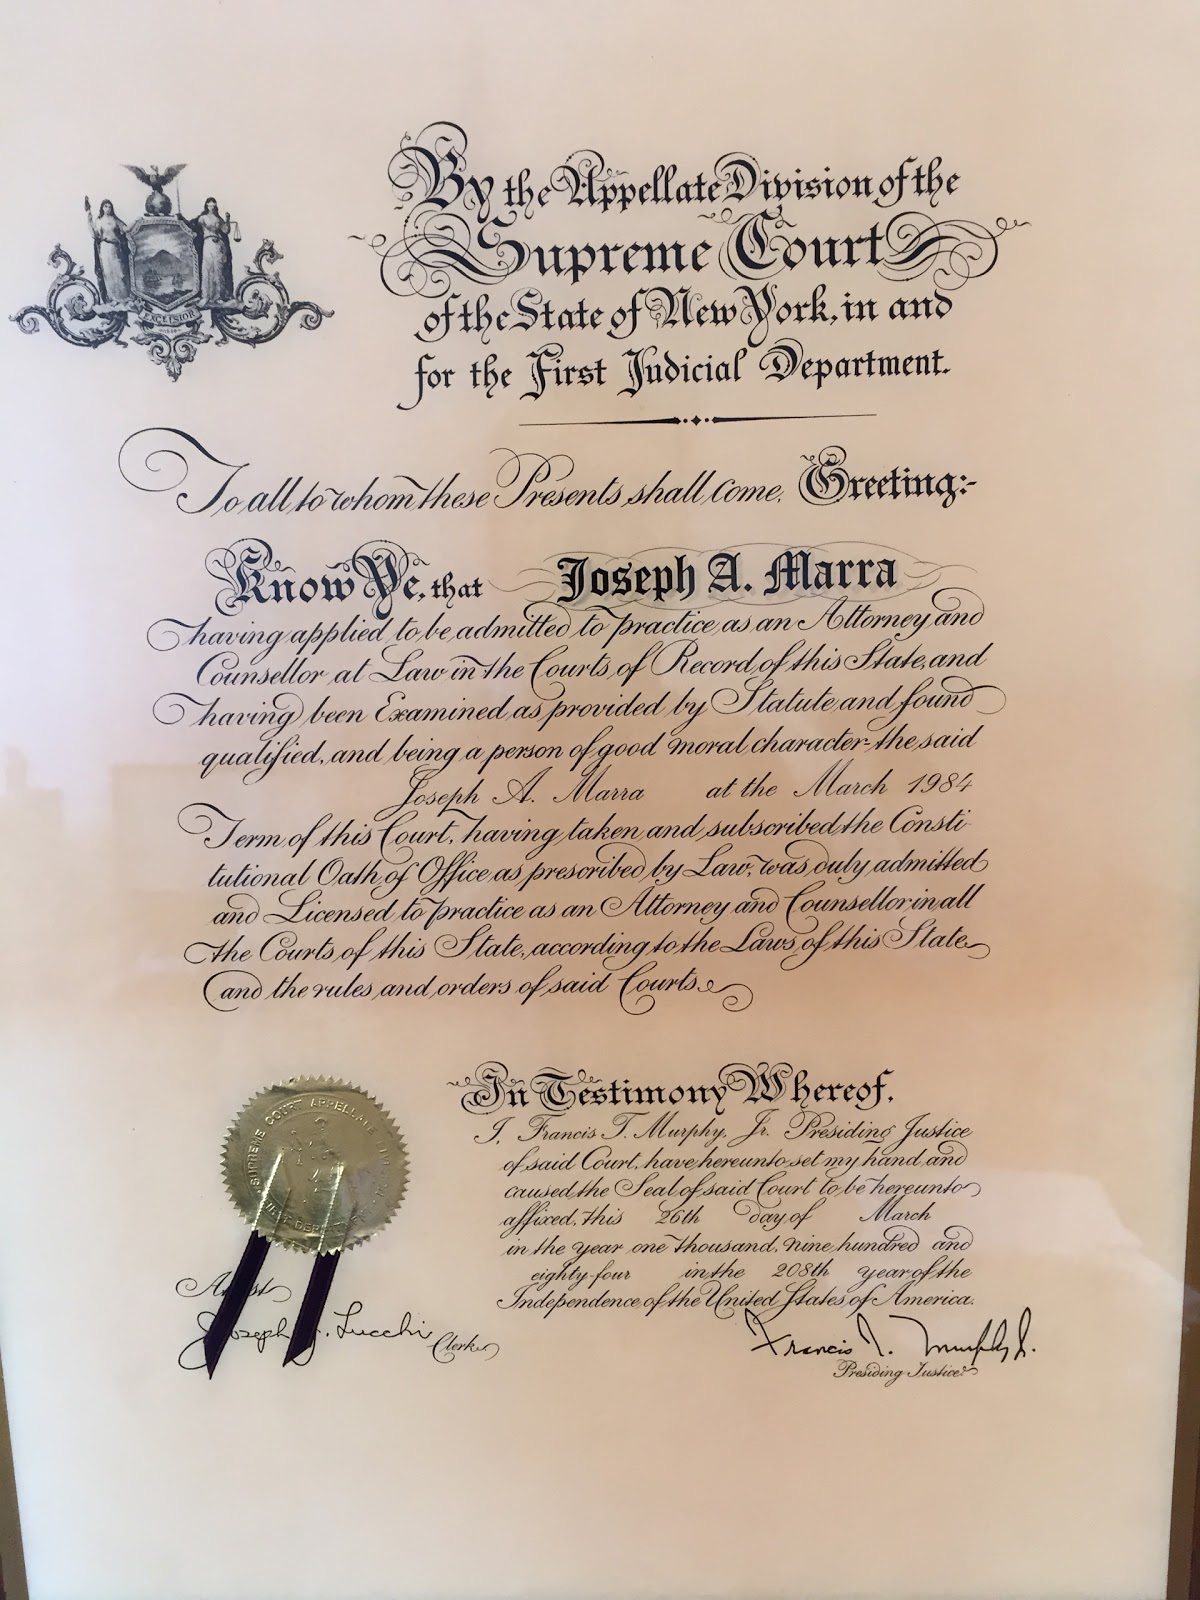 By the Appellate Division of the
Supreme Court
of the State of New York, in and
for the First Judicial Department.
EXCELSIOR
To all to whom these Presents shall come, Greeting:-
Know Ye, that Joseph A. Marra
having applied to be admitted to practice as an Attorney and
Counsellor at Law in the Courts of Record of this State, and
having been Examined as provided by Statute and found
qualified, and being a person of good moral character the said
Joseph A. Marra at the March 1984
Term of this Court, having taken and subscribed the Consti-
tutional Oath of Office as prescribed by Law, was duly admitted
and Licensed to practice as an Attorney and Counsellor in all
the Courts of this State, according to the Laws of this State
and the rules and orders of said Courts.
In Testimony Whereof,
I, Francis T. Murphy, Jr. Presiding Justice
of said Court, have hereunto set my hand and
caused the Seal of said Court to be hereunto
affixed, this 26th day of March
in the year one thousand, nine hundred and
eighty-four in the 208th year of the
Independence of the United States of America.
SUPREME COURT APPELLATE
Attest
Joseph J. Lucchi
Clerk
Francis T. Murphy Jr.
Presiding Justice